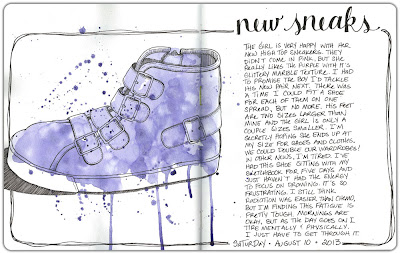 new sneaks
THE GIRL IS VERY HAPPY WITH HER
NEW HIGH TOP SNEAKERS. THEY
DIDN'T COME IN PINK. BUT SHE
REALLY LIKES THE PURPLE WITH IT'S
GLITERY MARBLE TEXTURE. I HAD
TO PROMISE THE BOY I'D TACKLE
HIS NEW PAIR NEXT. THERE WAS
A TIME I COULD FIT A SHOE
FOR EACH OF THEM ON ONE
SPREAD, BUT NO MORE. HIS FEET
ARE TWO SIZES LARGER THAN
MINE AND THE GIRL IS ONLY A
COUPLE SIZES SMALLER. I'M
SECRETLY HOPING SHE ENDS UP AT
MY SIZE FOR SHOES AND CLOTHES,
WE COULD DOUBLE OUR WARDROBES!
IN OTHER NEWS, I'M TIRED. I'VE
HAD THIS SHOE SITTING WITH MY
SKETCHBOOK FOR FIVE DAYS AND
JUST HAVEN'T HAD THE ENERGY
TO FOCUS ON DRAWING. IT'S SO
FRUSTRATING. I STILL THINK
RADIATION WAS EASIER THAN CHEMO,
BUT I'M FINDING THIS FATIGUE IS
PRETTY TOUGH. MORNINGS ARE
OKAY, BUT AS THE DAY GOES ON I
TIRE MENTALLY & PHYSICALLY.
I JUST HAVE TO GET THROUGH IT.
SATURDAY • AUGUST 10 • 2013